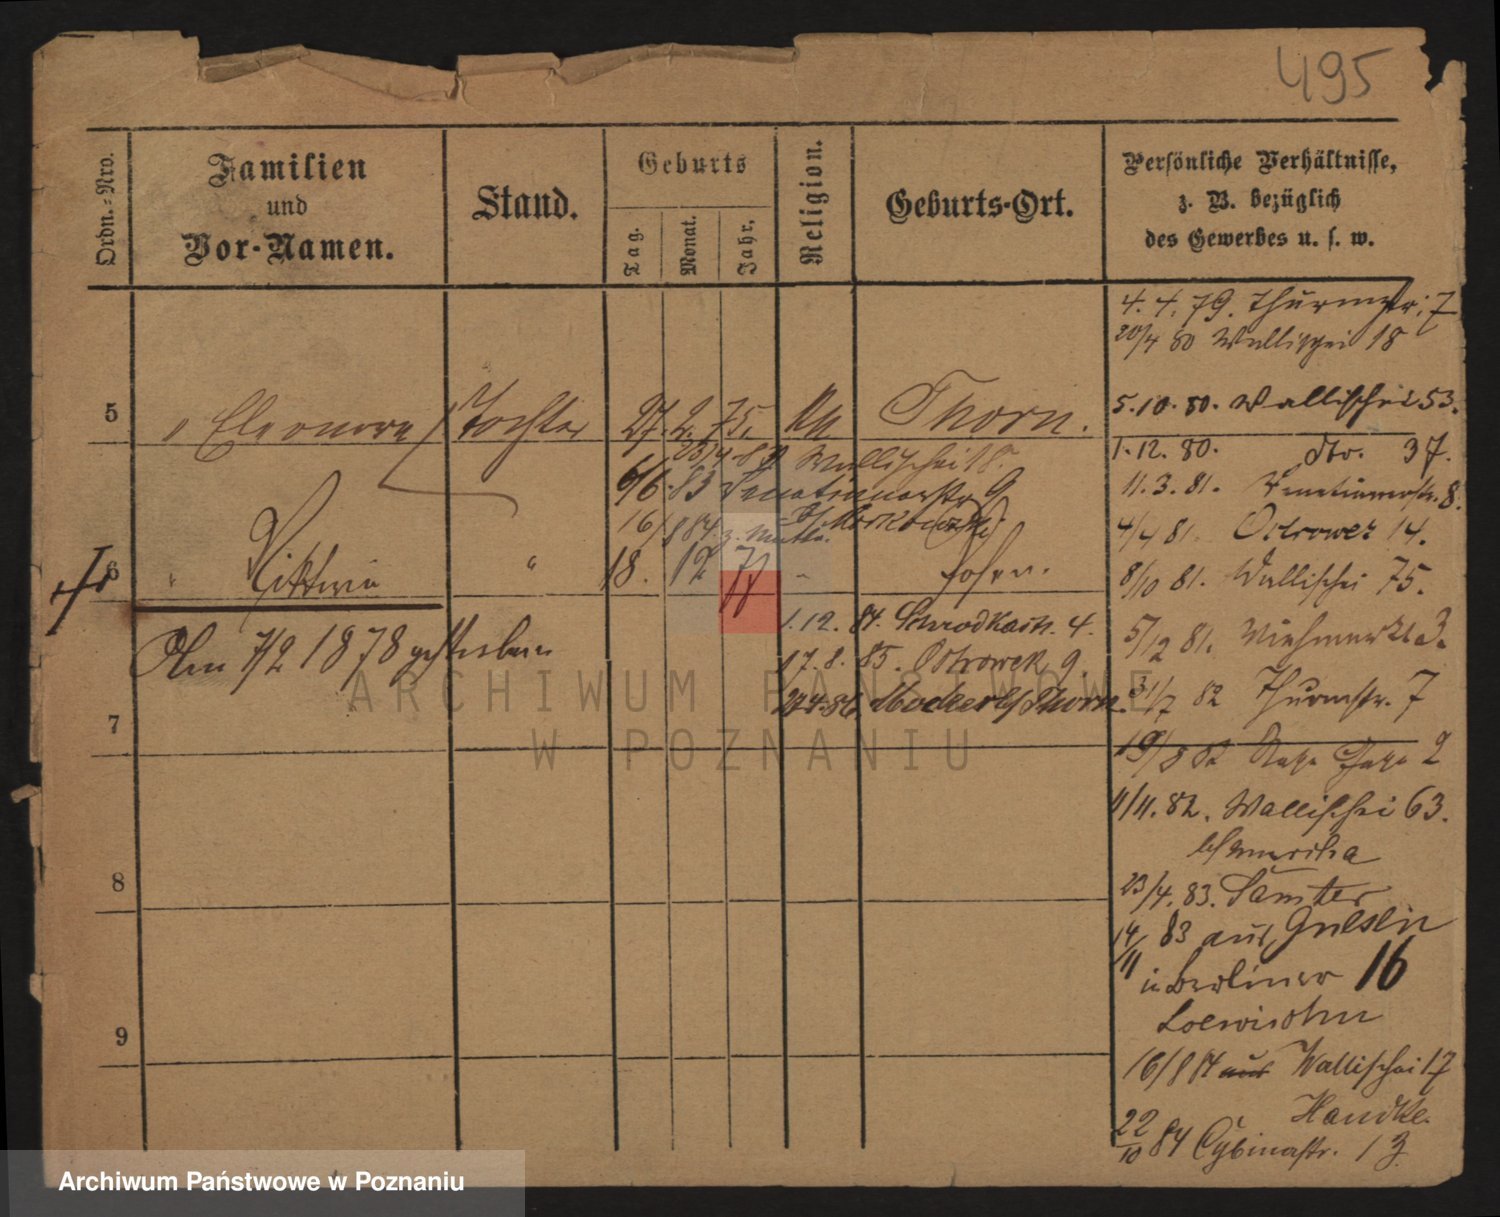 495
Ordn.=Nro.
Familien
und
Vor-Namen.
Stand.
Geburts
Tag.
Monat.
Jahr,
Religion.
Geburts-Ort.
Persönliche Verhältnisse,
z. B. bezüglich
des Gewerbes u. s. w.
4. 4. 79. Thurmstr. 7
20/4 80 Wallischei 18
5 " Eleonora Tochter 27. 2. 75. Thorn.
5. 10. 80. Wallischei 53.
1. 12. 80. dto. 37.
23/4 83 Wallischei 18.
6/6 83 Venetianerstr 9
11. 3. 81. Venetianerstr. 8.
16/8 84 z. Mutter
4/4 81. Ostrowek 14.
6 " Viktoria " 18. 12 77 " Posen.
8/10 81. Wallischei 75.
Am 7/2 1878 gestorben
1. 12. 84. Schrodkastr. 4.
5/12 81. Viehmarkt 3.
17. 8. 85. Ostrowek 9
24.4.86. Mocker b/ Thorn.
31/7 82 Thurmstr. 7
7
19/8 82 2
4/11. 82. Wallischei 63.
8
23/4. 83. Samter
14/11 83 aus Gnesen
in Berliner 16
Loewisohn
9
16/8 84 aus Wallischei 17
Handke.
22/10 84 Cybinastr. 13
ARCHIWUM PAŃSTWOWE
W POZNANIU
Archiwum Państwowe w Poznaniu